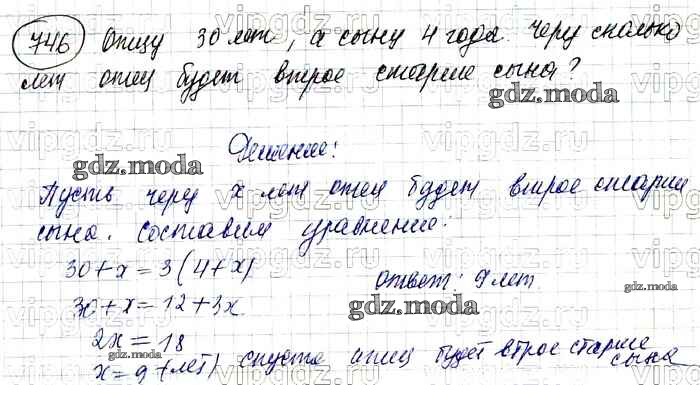 746 Отцу 30 лет, а сыну 4 года. Через сколько
лет отец будет втрое старше сына?
gdz.moda
Решение:
gdz.moda
Пусть через x лет отец будет втрое старше
сына. Составим уравнение:
30+x=3(4+x)
Ответ: 9 лет.
30+x=12+3x
gdz.moda
2x=18
x=9 (лет) спустя отец будет втрое старше
сына
gdz.moda
vipgdz.ru